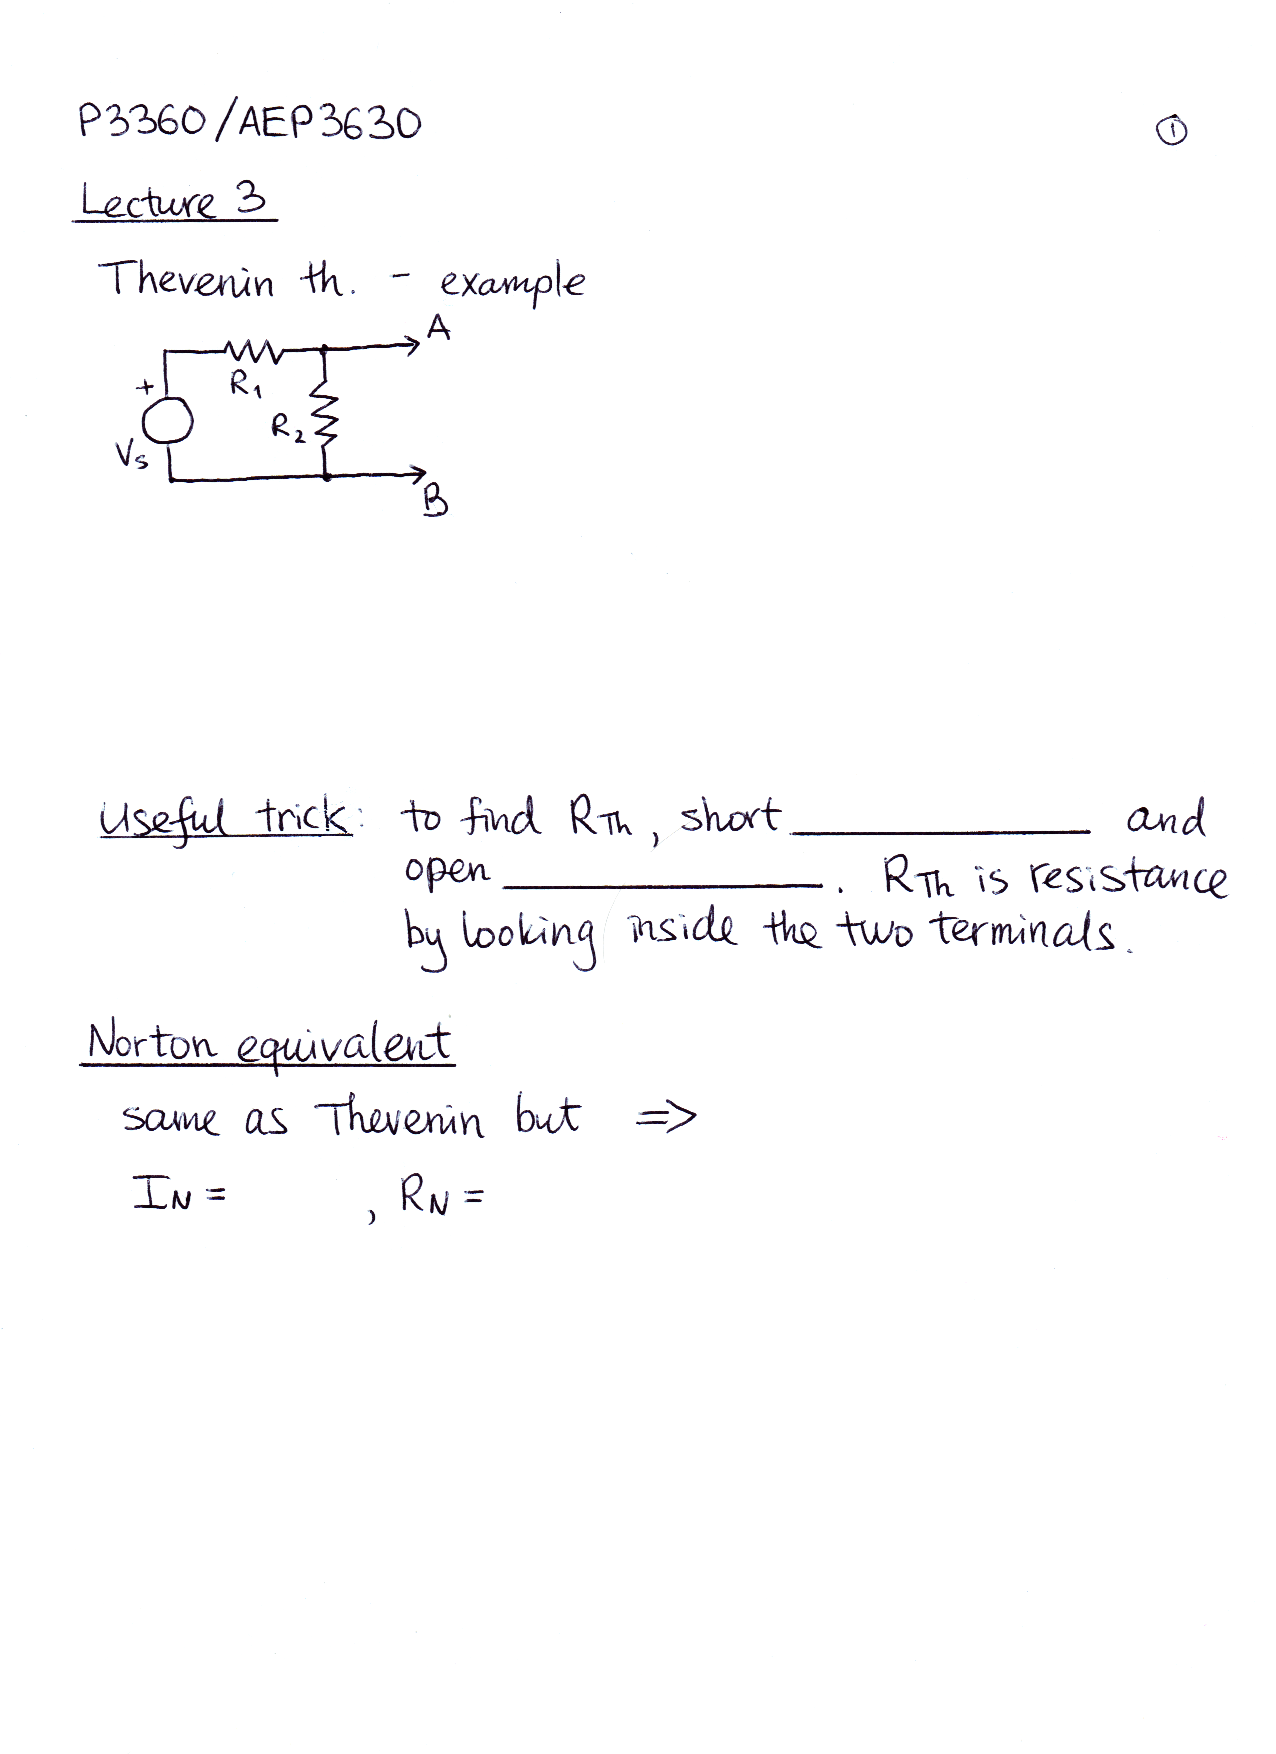 P3360/AEP3630
①
Lecture 3
Thevenin th. - example
A
+
R1
R2
Vs
B
Useful trick: to find RTh, short ____________ and
open ____________. RTh is resistance
by looking inside the two terminals.
Norton equivalent
same as Thevenin but =>
IN = , RN =